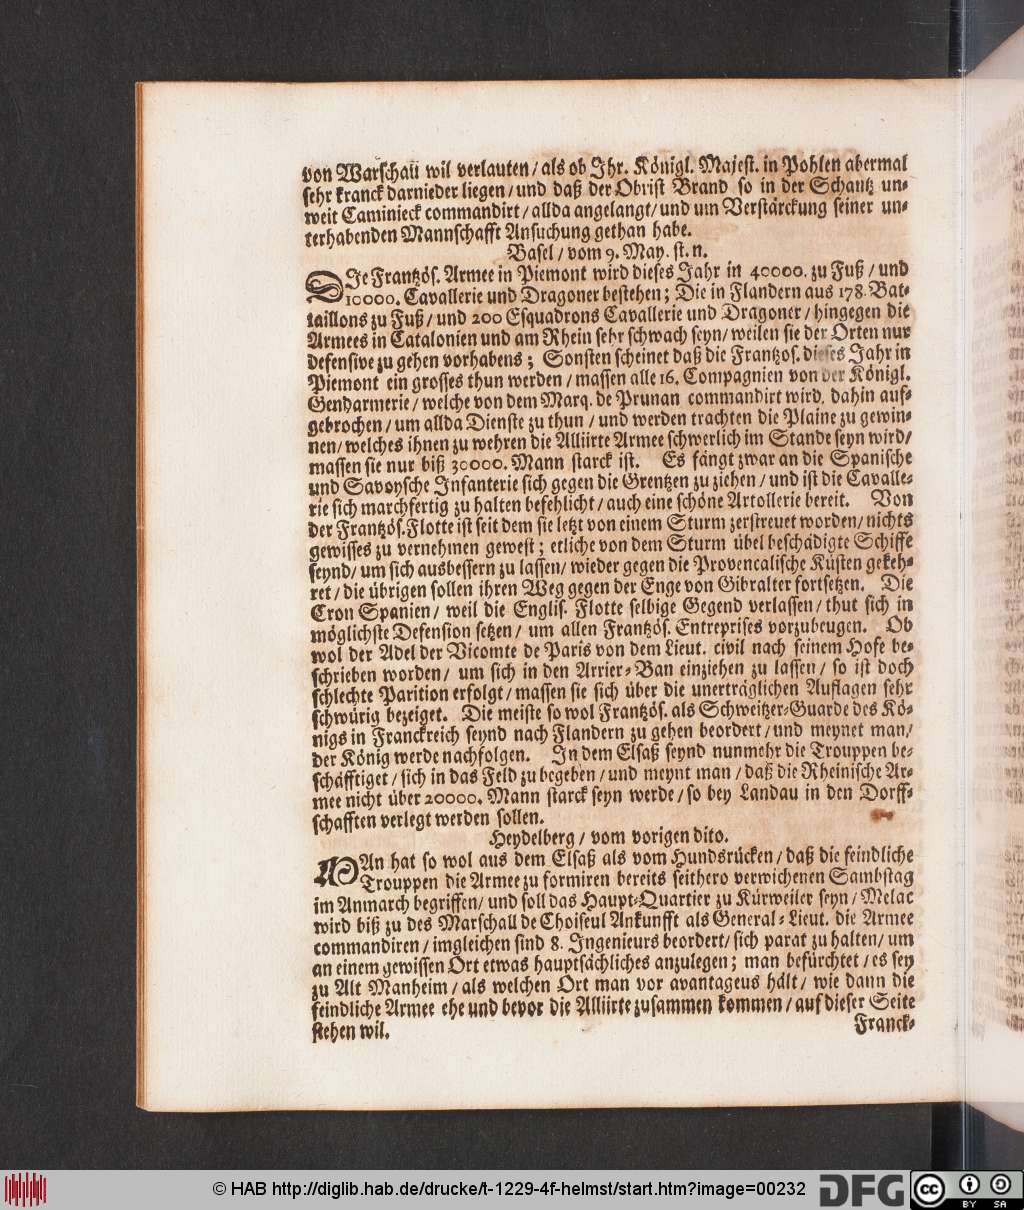 von Warschau wil verlauten/ als ob Ihr. Königl. Majest. in Pohlen abermal
sehr kranck darnieder liegen/ und daß der Obrist Brand so in der Schantz un-
weit Caminieck commandirt/ allda angelangt/ und um Verstärckung seiner un-
terhabenden Mannschafft Ansuchung gethan habe.
Basel/ vom 9. May. st. n.
DIe Frantzös. Armee in Piemont wird dieses Jahr in 40000. zu Fuß/ und
10000. Cavallerie und Dragoner bestehen; Die in Flandern aus 178. Bat-
taillons zu Fuß/ und 200 Esquadrons Cavallerie und Dragoner/ hingegen die
Armees in Catalonien und am Rhein sehr schwach seyn/ weilen sie der Orten nur
defensive zu gehen vorhabens; Sonsten scheinet daß die Frantzos. dieses Jahr in
Piemont ein grosses thun werden/ massen alle 16. Compagnien von der Königl.
Gendarmerie/ welche von dem Marq. de Prunan commandirt wird, dahin auf-
gebrochen/ um allda Dienste zu thun/ und werden trachten die Plaine zu gewin-
nen/ welches ihnen zu wehren die Alliirte Armee schwerlich im Stande seyn wird/
massen sie nur biß 30000. Mann starck ist. Es fängt zwar an die Spanische
und Savoysche Infanterie sich gegen die Grentzen zu ziehen/ und ist die Cavalle-
rie sich marchfertig zu halten befehlicht/ auch eine schöne Artollerie bereit. Von
der Frantzös. Flotte ist seit dem sie letzt von einem Sturm zerstreuet worden/ nichts
gewisses zu vernehmen gewest; etliche von dem Sturm übel beschädigte Schiffe
seynd/ um sich ausbessern zu lassen/ wieder gegen die Provencalische Küsten gekeh-
ret/ die übrigen sollen ihren Weg gegen der Enge von Gibralter fortsetzen. Die
Cron Spanien/ weil die Englis. Flotte selbige Gegend verlassen/ thut sich in
möglichste Defension setzen/ um allen Frantzös. Entreprises vorzubeugen. Ob
wol der Adel der Vicomte de Paris von dem Lieut. civil nach seinem Hofe be-
schrieben worden/ um sich in den Arrier-Ban einziehen zu lassen/ so ist doch
schlechte Parition erfolgt/ massen sie sich über die unerträglichen Auflagen sehr
schwürig bezeiget. Die meiste so wol Frantzös. als Schweitzer-Guarde des Kö-
nigs in Franckreich seynd nach Flandern zu gehen beordert/ und meynet man/
der König werde nachfolgen. In dem Elsaß seynd nunmehr die Trouppen be-
schäfftiget/ sich in das Feld zu begeben/ und meynt man/ daß die Rheinische Ar-
mee nicht über 20000. Mann starck seyn werde/ so bey Landau in den Dorff-
schafften verlegt werden sollen.
Heydelberg/ vom vorigen dito.
MAn hat so wol aus dem Elsaß als vom Hundsrücken/ daß die feindliche
Trouppen die Armee zu formiren bereits seithero verwichenen Sambstag
im Anmarch begriffen/ und soll das Haupt-Quartier zu Kürweiler seyn/ Melac
wird biß zu des Marschall de Choiseul Ankunfft als General-Lieut. die Armee
commandiren/ imgleichen sind 8. Ingenieurs beordert/ sich parat zu halten/ um
an einem gewissen Ort etwas hauptsächliches anzulegen; man befürchtet/ es sey
zu Alt Manheim/ als welchen Ort man vor avantageus hält/ wie dann die
feindliche Armee ehe und bevor die Alliirte zusammen kommen/ auf dieser Seite
stehen wil.
Franck-
© HAB http://diglib.hab.de/drucke/t-1229-4f-helmst/start.htm?image=00232
DFG
cc BY SA